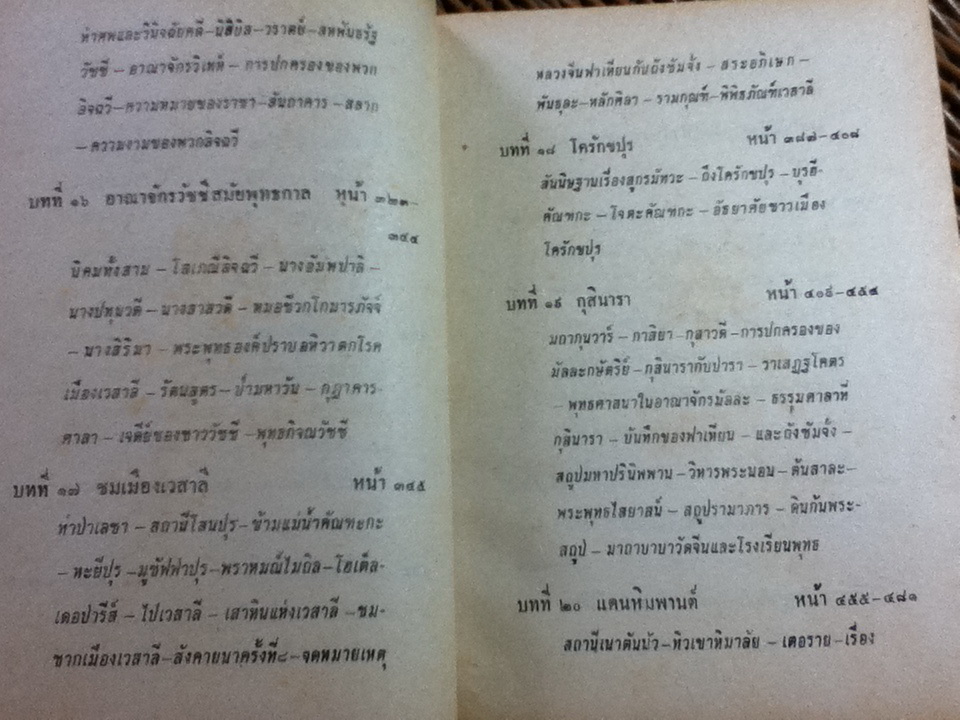 ทำศพและวินิจฉัยคดี–นิสิบิล–วราตย์–สหพันธรัฐ
วัชชี – อาณาจักรวิเทห์ – การปกครองของพวก
ลิจฉวี–ความหมายของราชา–สันถาคาร–สลาก
–ความงามของพวกลิจฉวี
บทที่ ๑๖ อาณาจักรวัชชีสมัยพุทธกาล หน้า ๓๒๓–
๓๔๔
นิคมทั้งสาม – โสเภณีลิจฉวี – นางอัมพปาลิ –
นางปทุมวดี – นางสาลวดี – หมอชีวกโกมารภัจจ์
– นางสิริมา – พระพุทธองค์ปราบอหิวาตกโรค
เมืองเวสาลี – รัตนสูตร – ป่ามหาวัน – กูฏาคาร-
ศาลา – เจดีย์ของชาววัชชี –พุทธกิจณวัชชี
บทที่ ๑๗ ชมเมืองเวสาลี หน้า ๓๔๕
ท่าปาเลซา – สถานีโสนปุร –ข้ามแม่น้ำคัณฑะกะ
– หะยีปุร – มูซัฟฟาปุร–พราหมณ์ไมถิล–โฮเต็ล-
เดอปารีส์ – ไปเวสาลี – เสาหินแห่งเวสาลี –ชม-
ซากเมืองเวสาลี–สังคายนาครั้งที่๘–จดหมายเหตุ
หลวงจีนฟาเหียนกับถังซัมจั๋ง – สระอภิเษก –
พันธุละ–หลักศิลา – รามกุณฑ์–พิพิธภัณฑ์เวสาลี
บทที่ ๑๘ โครักขปุร หน้า ๓๘๗–๔๐๘
สันนิษฐานเรื่องสูกรมัทวะ – ถึงโครักขปุร – บุรฮี-
คัณฑกะ – โจตะคัณฑกะ – อัธยาศัยชาวเมือง
โครักขปุร
บทที่ ๑๙ กุสินารา หน้า ๔๐๙–๔๕๔
มถากุนวาร์ – กาสิยา –กุสาวดี–การปกครองของ
มัลละกษัตริย์ –กุสินารากับปาวา – วาเสฏฐโคตร
– พุทธศาสนาในอาณาจักรมัลละ – ธรรมศาลาที่
กุสินารา – บันทึกของฟาเหียน – และถังซัมจั๋ง –
สถูปมหาปรินิพพาน –วิหารพระนอน–ต้นสาละ–
พระพุทธไสยาสน์ – สถูปรามาภาร – ดินก้นพระ-
สถูป – มาถาบาบาวัดจีนและโรงเรียนพุทธ
บทที่ ๒๐ แดนหิมพานต์ หน้า ๔๕๕–๔๘๑
สถานีเนาตันบัว–ทิวเขาหิมาลัย – เตอราย–เรื่อง